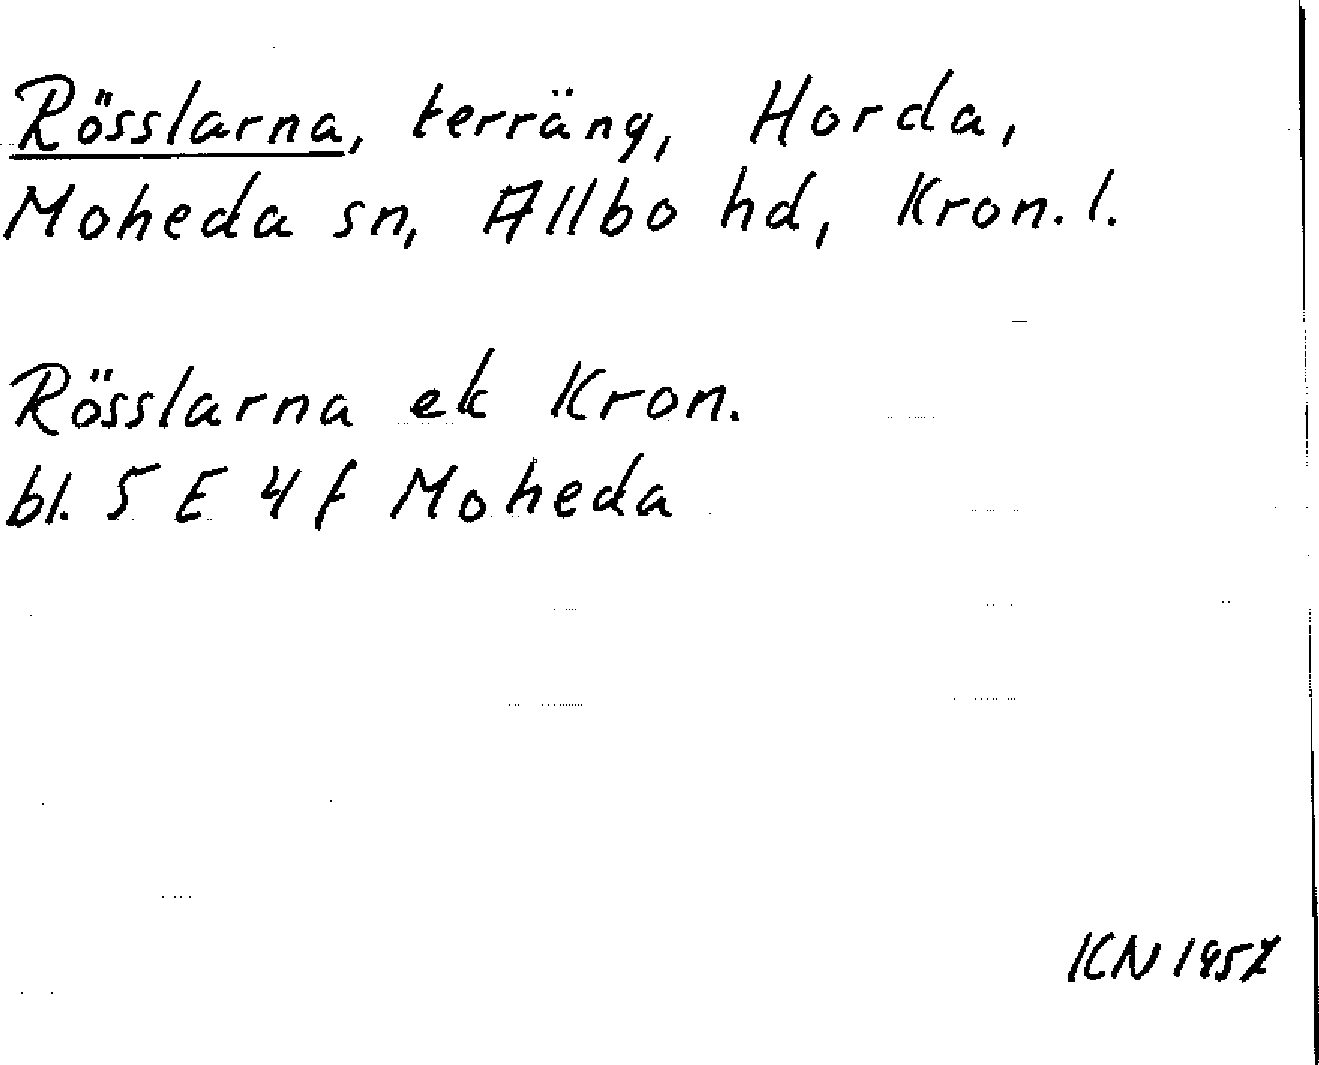 Rösslarna, terräng, Horda,
Moheda sn, Allbo hd, Kron. l.
Rösslarna ek Kron.
bl. 5 E 4 f Moheda
KN 1957